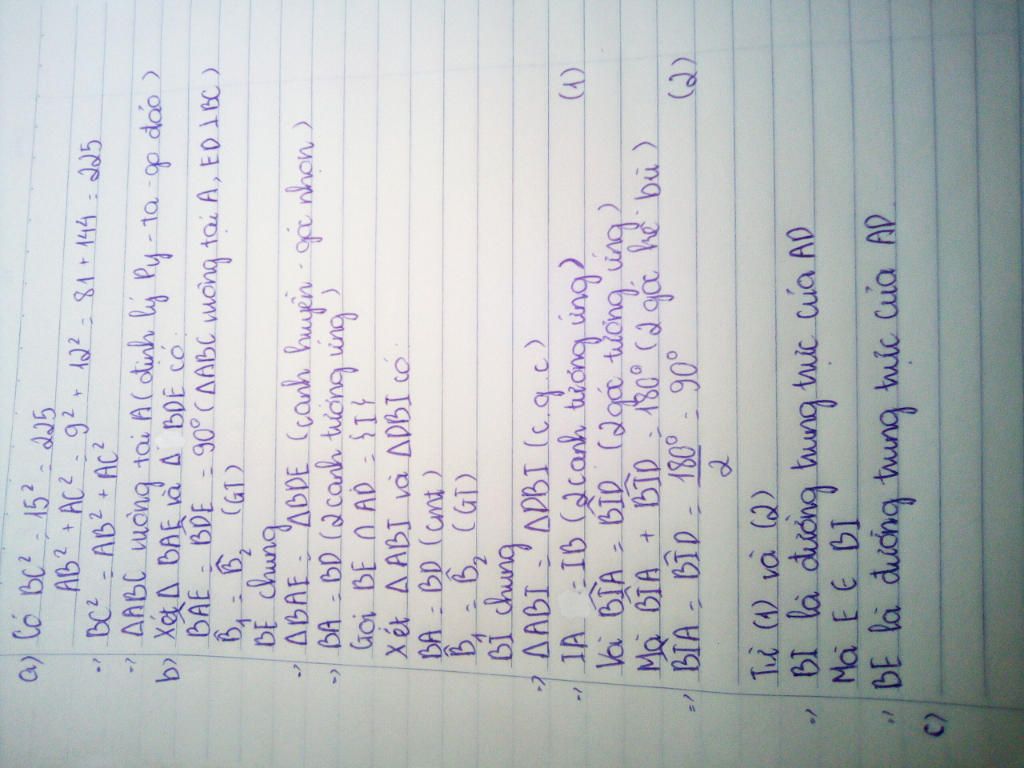 a) Có BC² = 15² = 225
AB² + AC² = 9² + 12² = 81 + 144 = 225
=> BC² = AB² + AC²
=> ΔABC vuông tại A (định lý Py-ta-go đảo)
b) Xét Δ BAE và Δ BDE có:
BAE = BDE = 90° (ΔABC vuông tại A, ED⊥BC)
B̂₁ = B̂₂ (GT)
BE chung
=> ΔBAE = ΔBDE (cạnh huyền - góc nhọn)
=> BA = BD (2 cạnh tương ứng)
Gọi BE ∩ AD = {I}
Xét ΔABI và ΔDBI có
BA = BD (cmt)
B̂₁ = B̂₂ (GT)
BI chung
=> ΔABI = ΔDBI (c.g.c)
=> IA = IB (2 cạnh tương ứng) (1)
Và BIA = BID (2 góc tương ứng)
Mà BIA + BID = 180° (2 góc kề bù)
=> BIA = BID = 180°/2 = 90° (2)
Từ (1) và (2)
=> BI là đường trung trực của AD
Mà E ∈ BI
=> BE là đường trung trực của AD
c)